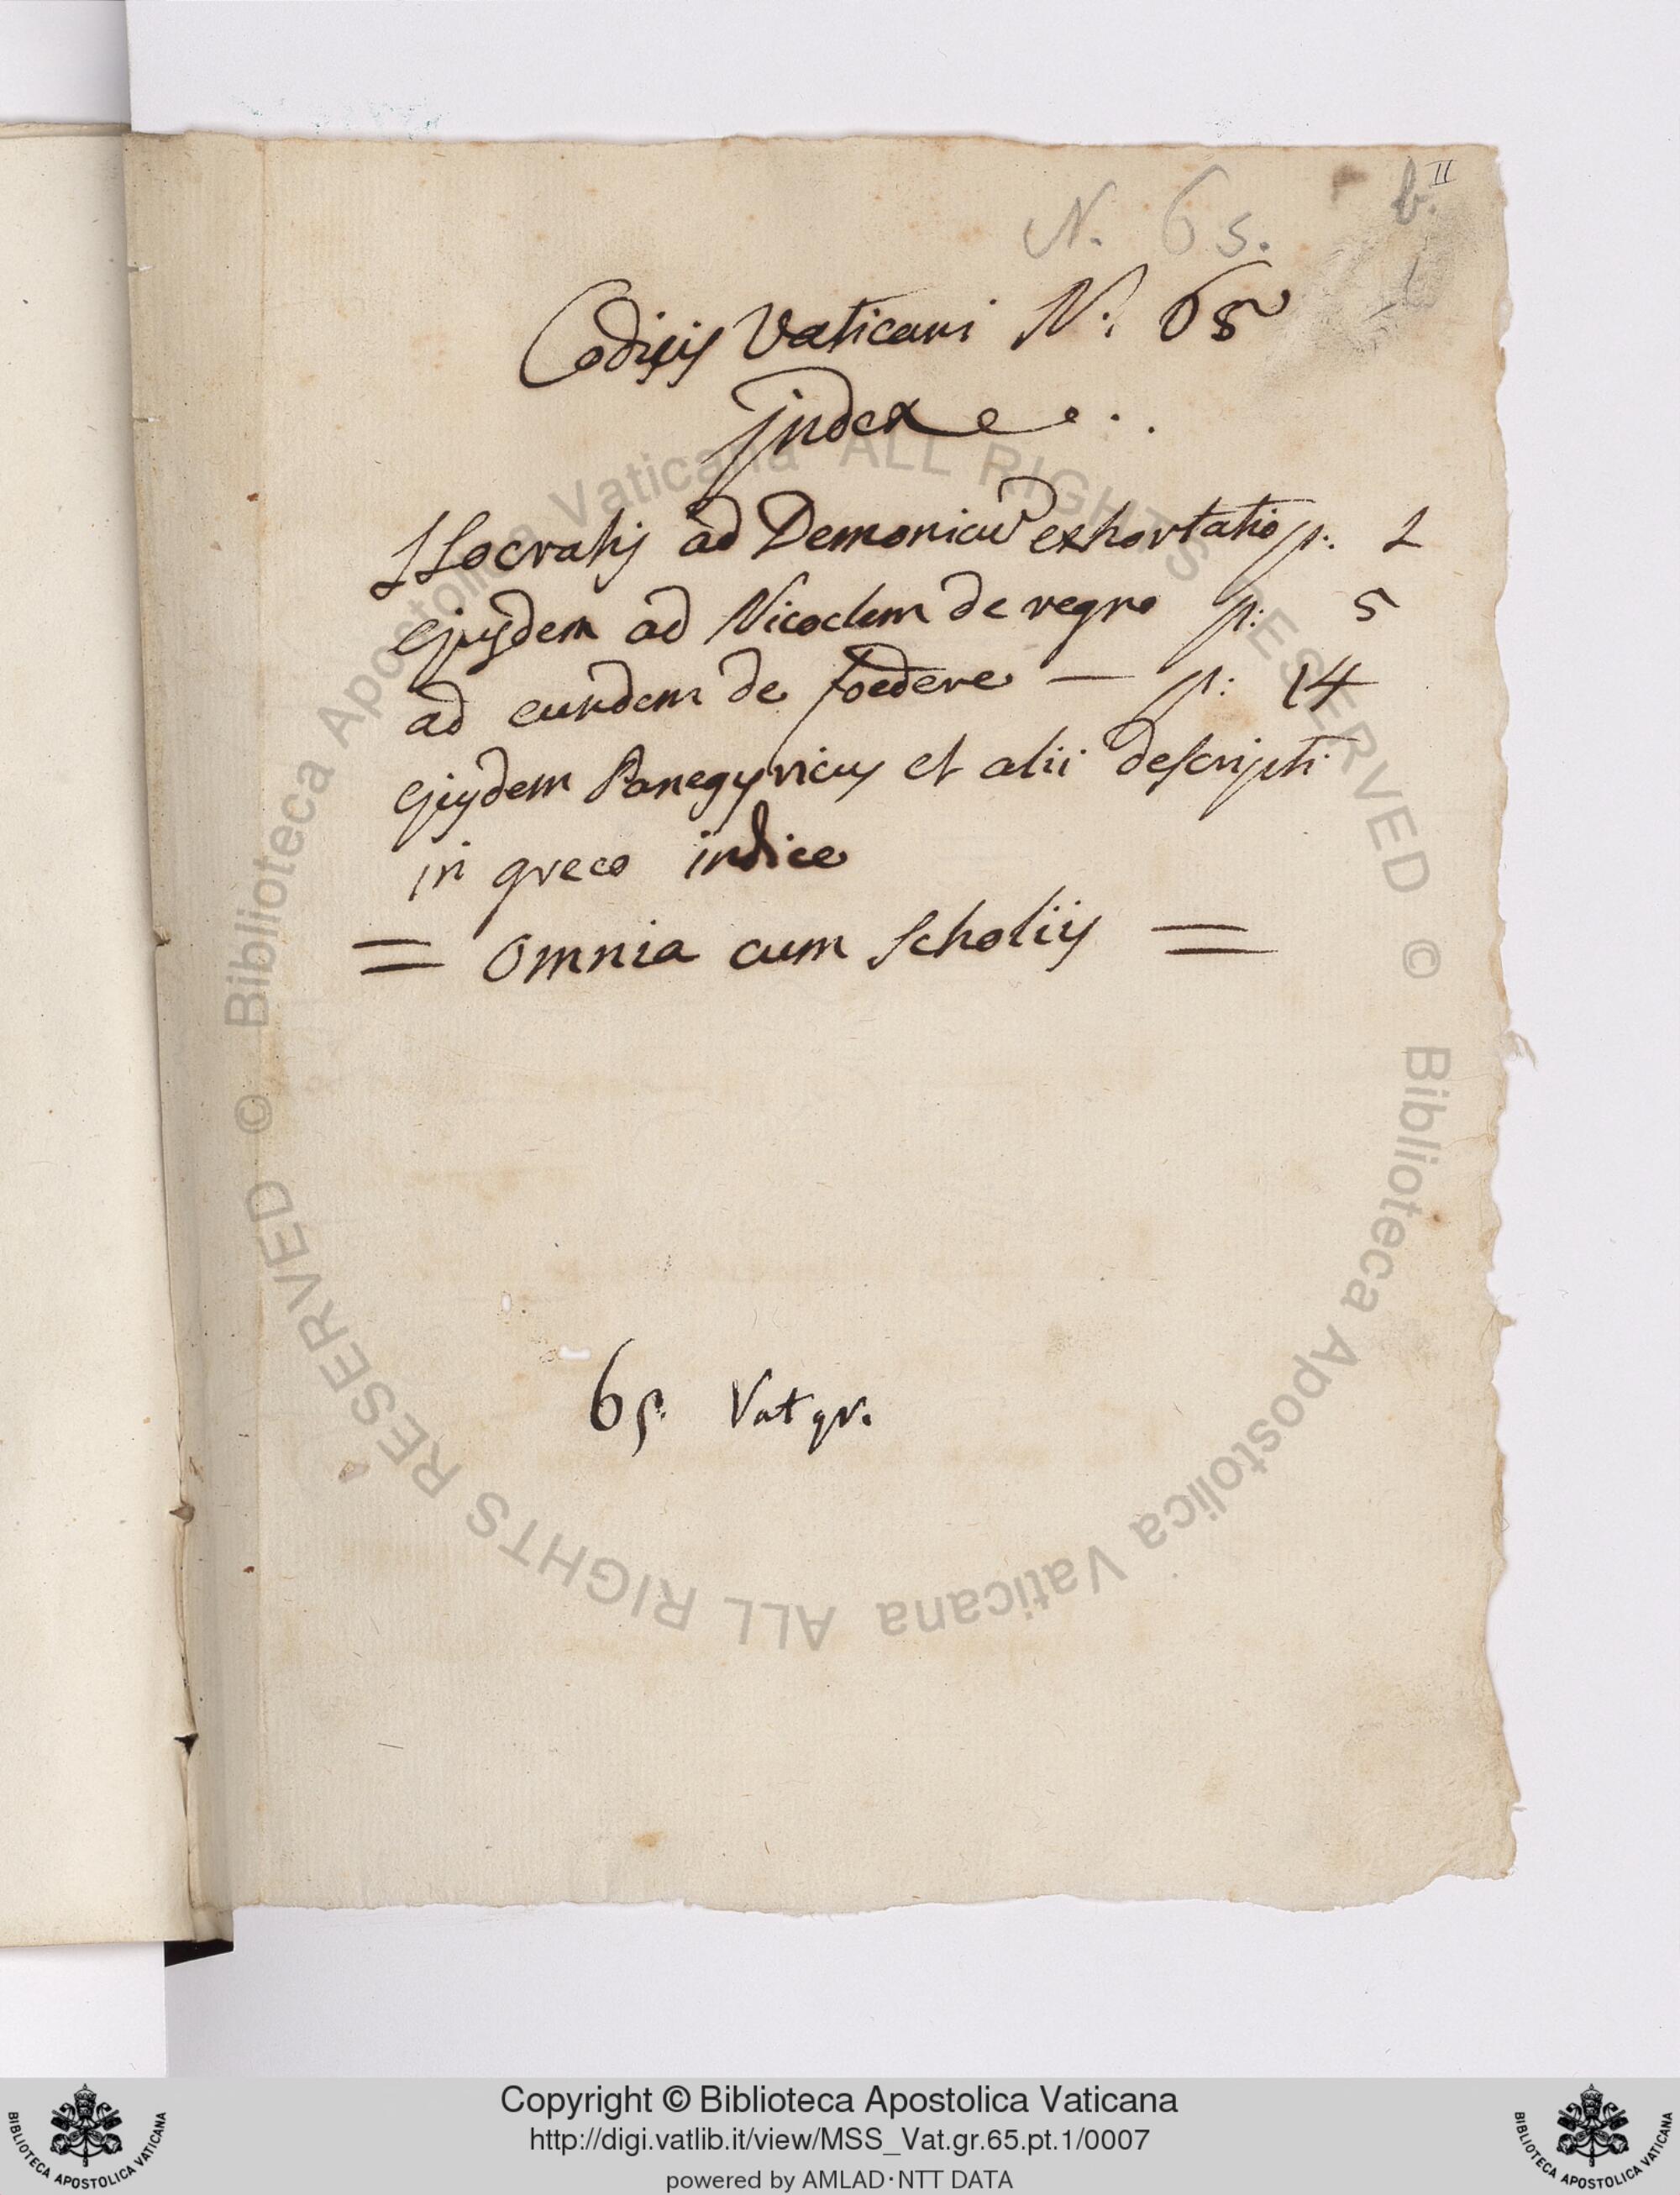 b. II
N. 65.
Codicis Vaticani N. 65
Index
Isocratis ad Demonicũ exhortatio p. 1
Ejusdem ad Nicoclem de regno p: 5
ad eundem de foedere — p: 14
Ejusdem Panegyricus et alii descripti
in greco indice
= Omnia cum scholiis =
65 Vat gr.
© Biblioteca Apostolica Vaticana ALL RIGHTS RESERVED
© Biblioteca Apostolica Vaticana ALL RIGHTS RESERVED
Copyright © Biblioteca Apostolica Vaticana
http://digi.vatlib.it/view/MSS_Vat.gr.65.pt.1/0007
powered by AMLAD·NTT DATA
BIBLIOTECA APOSTOLICA VATICANA
BIBLIOTECA APOSTOLICA VATICANA